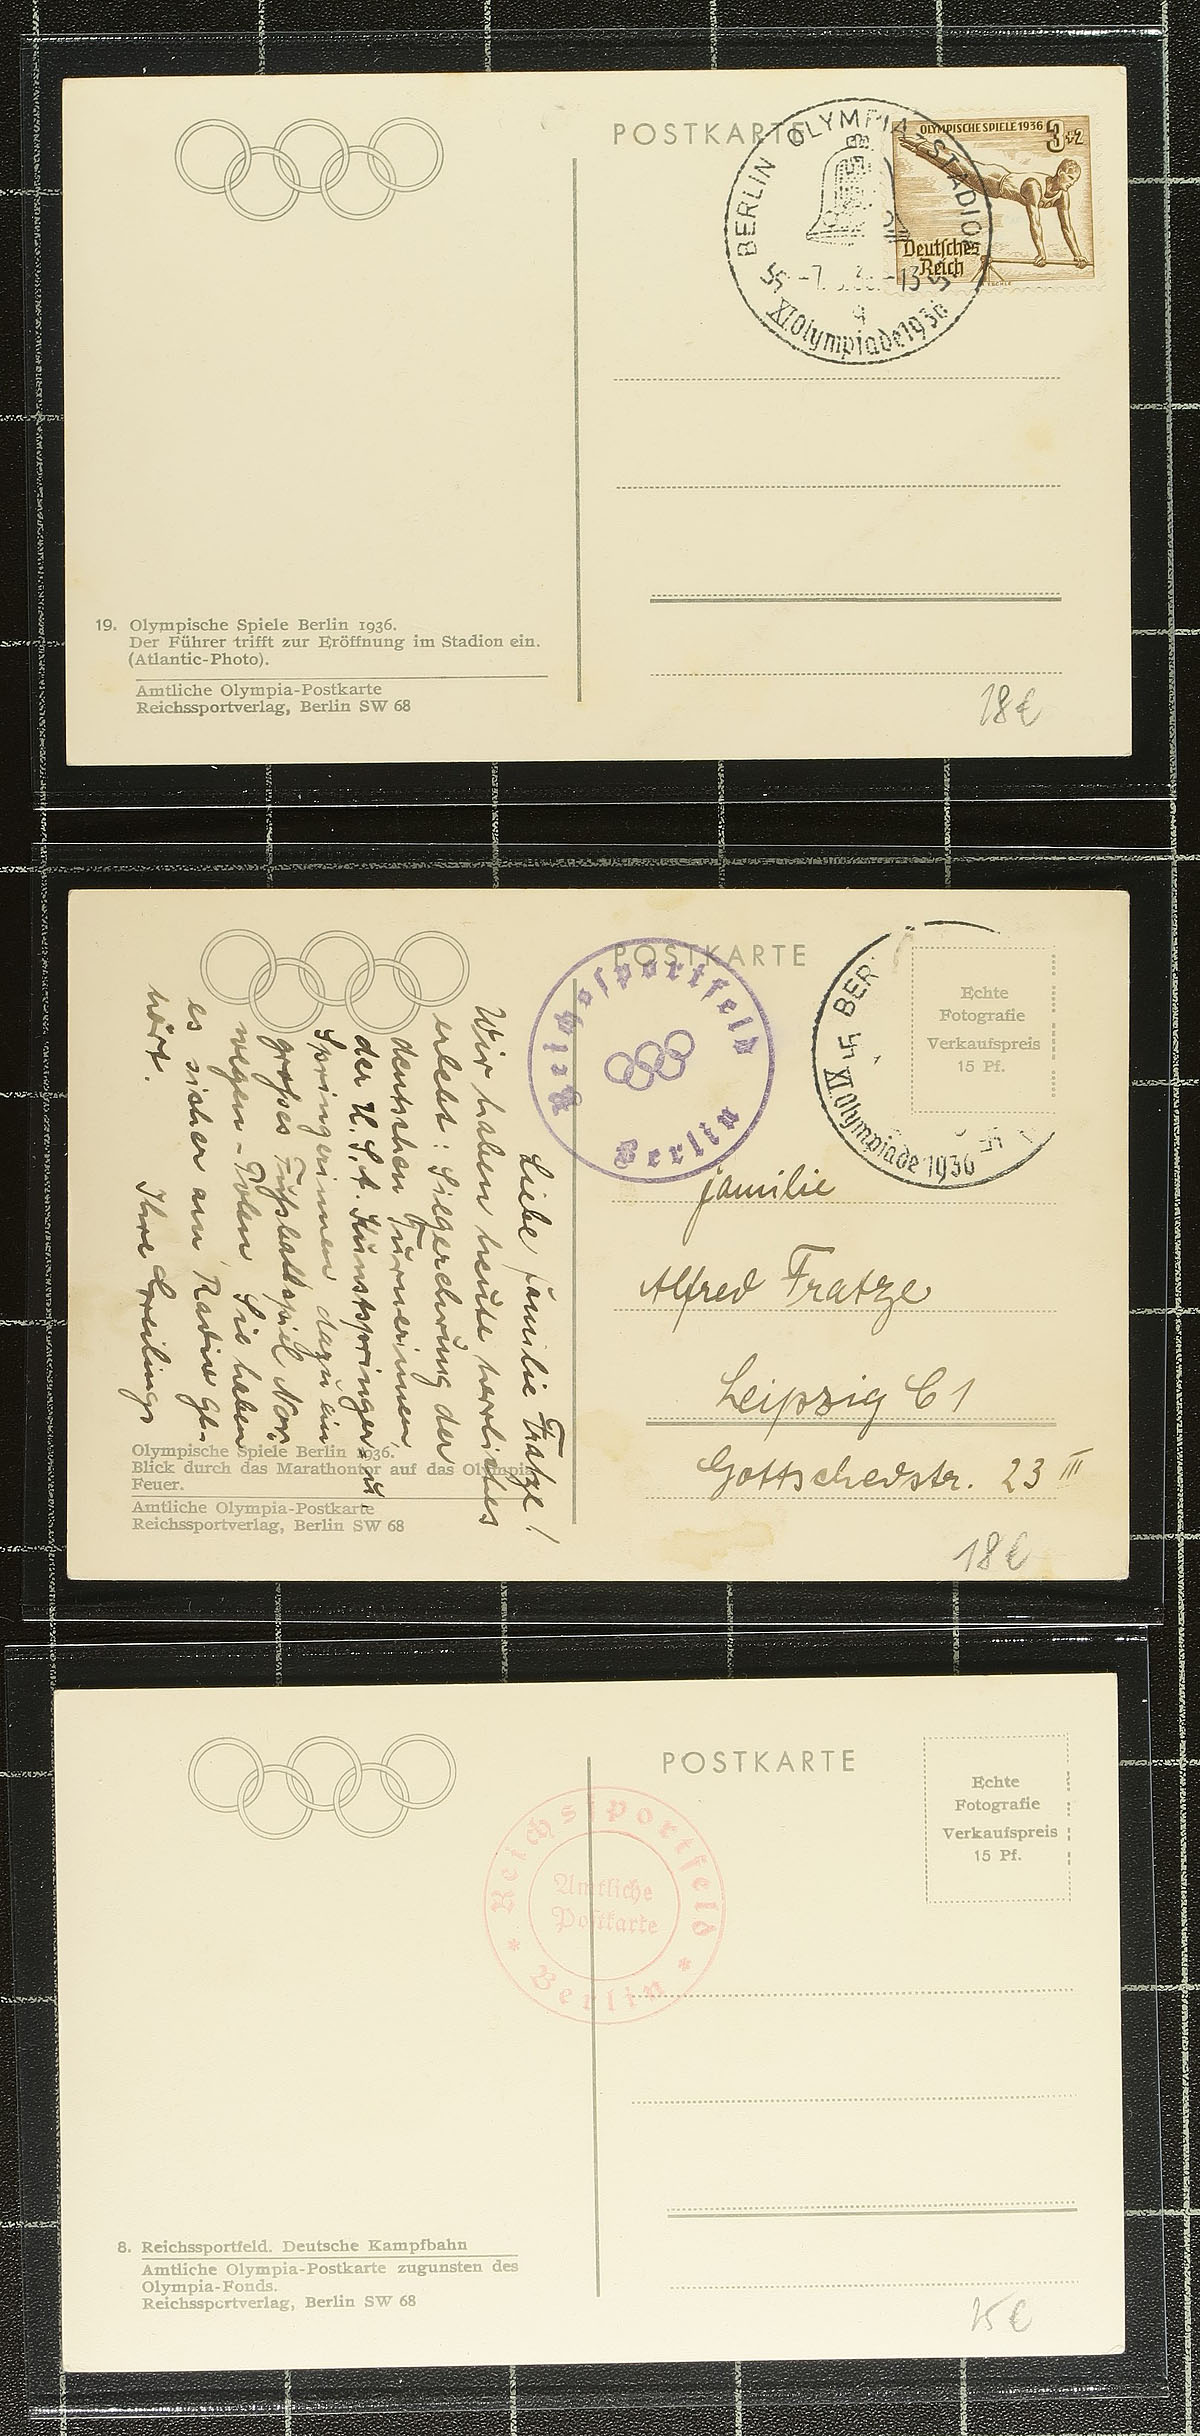 POSTKARTE
BERLIN OLYMPIA-STADION
XI.Olympiade1936
OLYMPISCHE SPIELE 1936 3+2
Deutsches
Reich
19. Olympische Spiele Berlin 1936.
Der Führer trifft zur Eröffnung im Stadion ein.
(Atlantic-Photo).
Amtliche Olympia-Postkarte
Reichssportverlag, Berlin SW 68
18€
POSTKARTE
Reichssportfeld
Berlin
BER
XI.Olympiade 1936
Echte
Fotografie
Verkaufspreis
15 Pf.
Liebe Familie Fratze!
Wir haben heute herrliches
erlebt: Siegerehrung der
deutschen Turnerinnen
der U.S.A. Kunstspringer u.
Springerinnen dazu ein
großes Fußballspiel Nor-
wegen-Polen. Sie haben
es sicher am Radio ge-
hört.
Ihre
Familie
Alfred Fratze
Leipzig C 1
Gottschedstr. 23 III
Olympische Spiele Berlin 1936.
Blick durch das Marathontor auf das Olympia-
Feuer.
Amtliche Olympia-Postkarte
Reichssportverlag, Berlin SW 68
18€
POSTKARTE
Echte
Fotografie
Verkaufspreis
15 Pf.
Reichssportfeld
Amtliche
Postkarte
* Berlin *
8. Reichssportfeld. Deutsche Kampfbahn
Amtliche Olympia-Postkarte zugunsten des
Olympia-Fonds.
Reichssportverlag, Berlin SW 68
15€